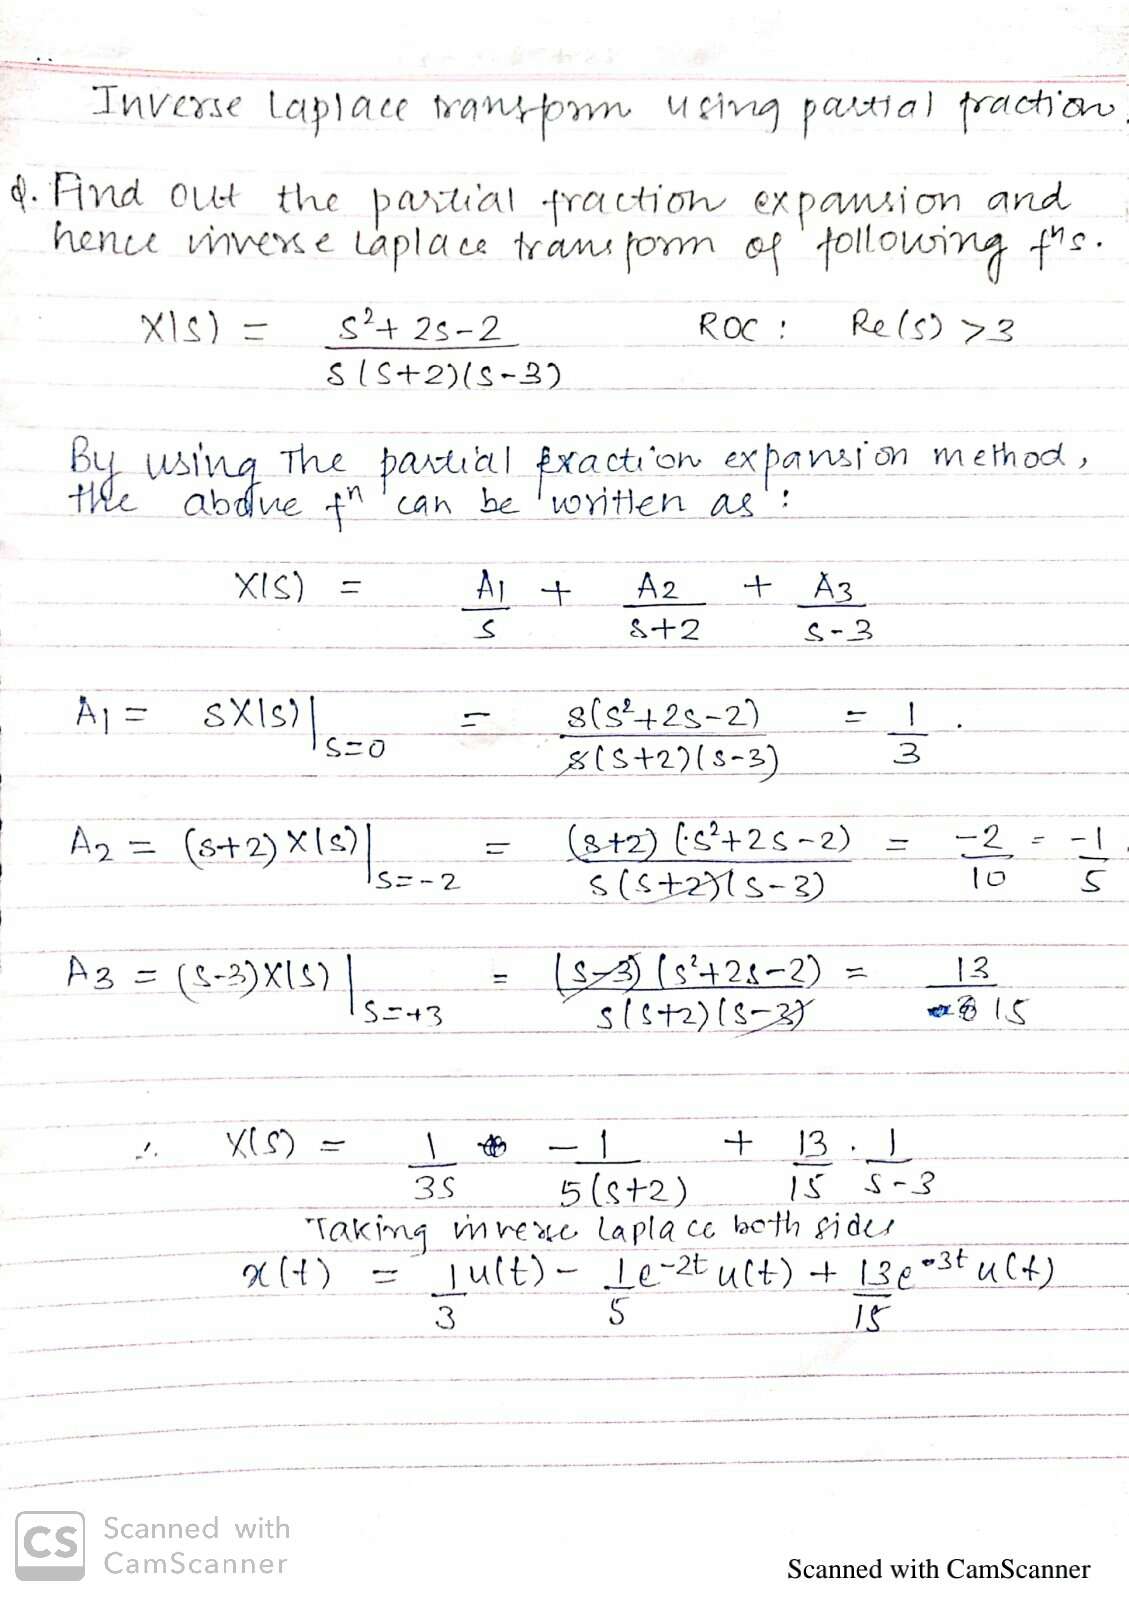 Inverse Laplace transform using partial fraction.
Q. Find out the partial fraction expansion and
hence inverse Laplace transform of following fⁿs.
X(s) = (s²+2s-2)/(s(s+2)(s-3)) ROC : Re(s) >3
By using The partial fraction expansion method,
the above fⁿ can be written as :
X(s) = A1/s + A2/(s+2) + A3/(s-3)
A1 = sX(s)|s=0 = s(s²+2s-2)/(s(s+2)(s-3)) = 1/3 .
A2 = (s+2) X(s)|s=-2 = (s+2)(s²+2s-2)/(s(s+2)(s-3)) = -2/10 = -1/5
A3 = (s-3)X(s)|s=+3 = (s-3)(s²+2s-2)/(s(s+2)(s-3)) = 13/15
∴ X(s) = 1/3s - 1/5(s+2) + 13/15 . 1/s-3
Taking inverse laplace both sides
x(t) = 1/3 u(t) - 1/5 e^-2t u(t) + 13/15 e^3t u(t)
CS Scanned with
CamScanner
Scanned with CamScanner